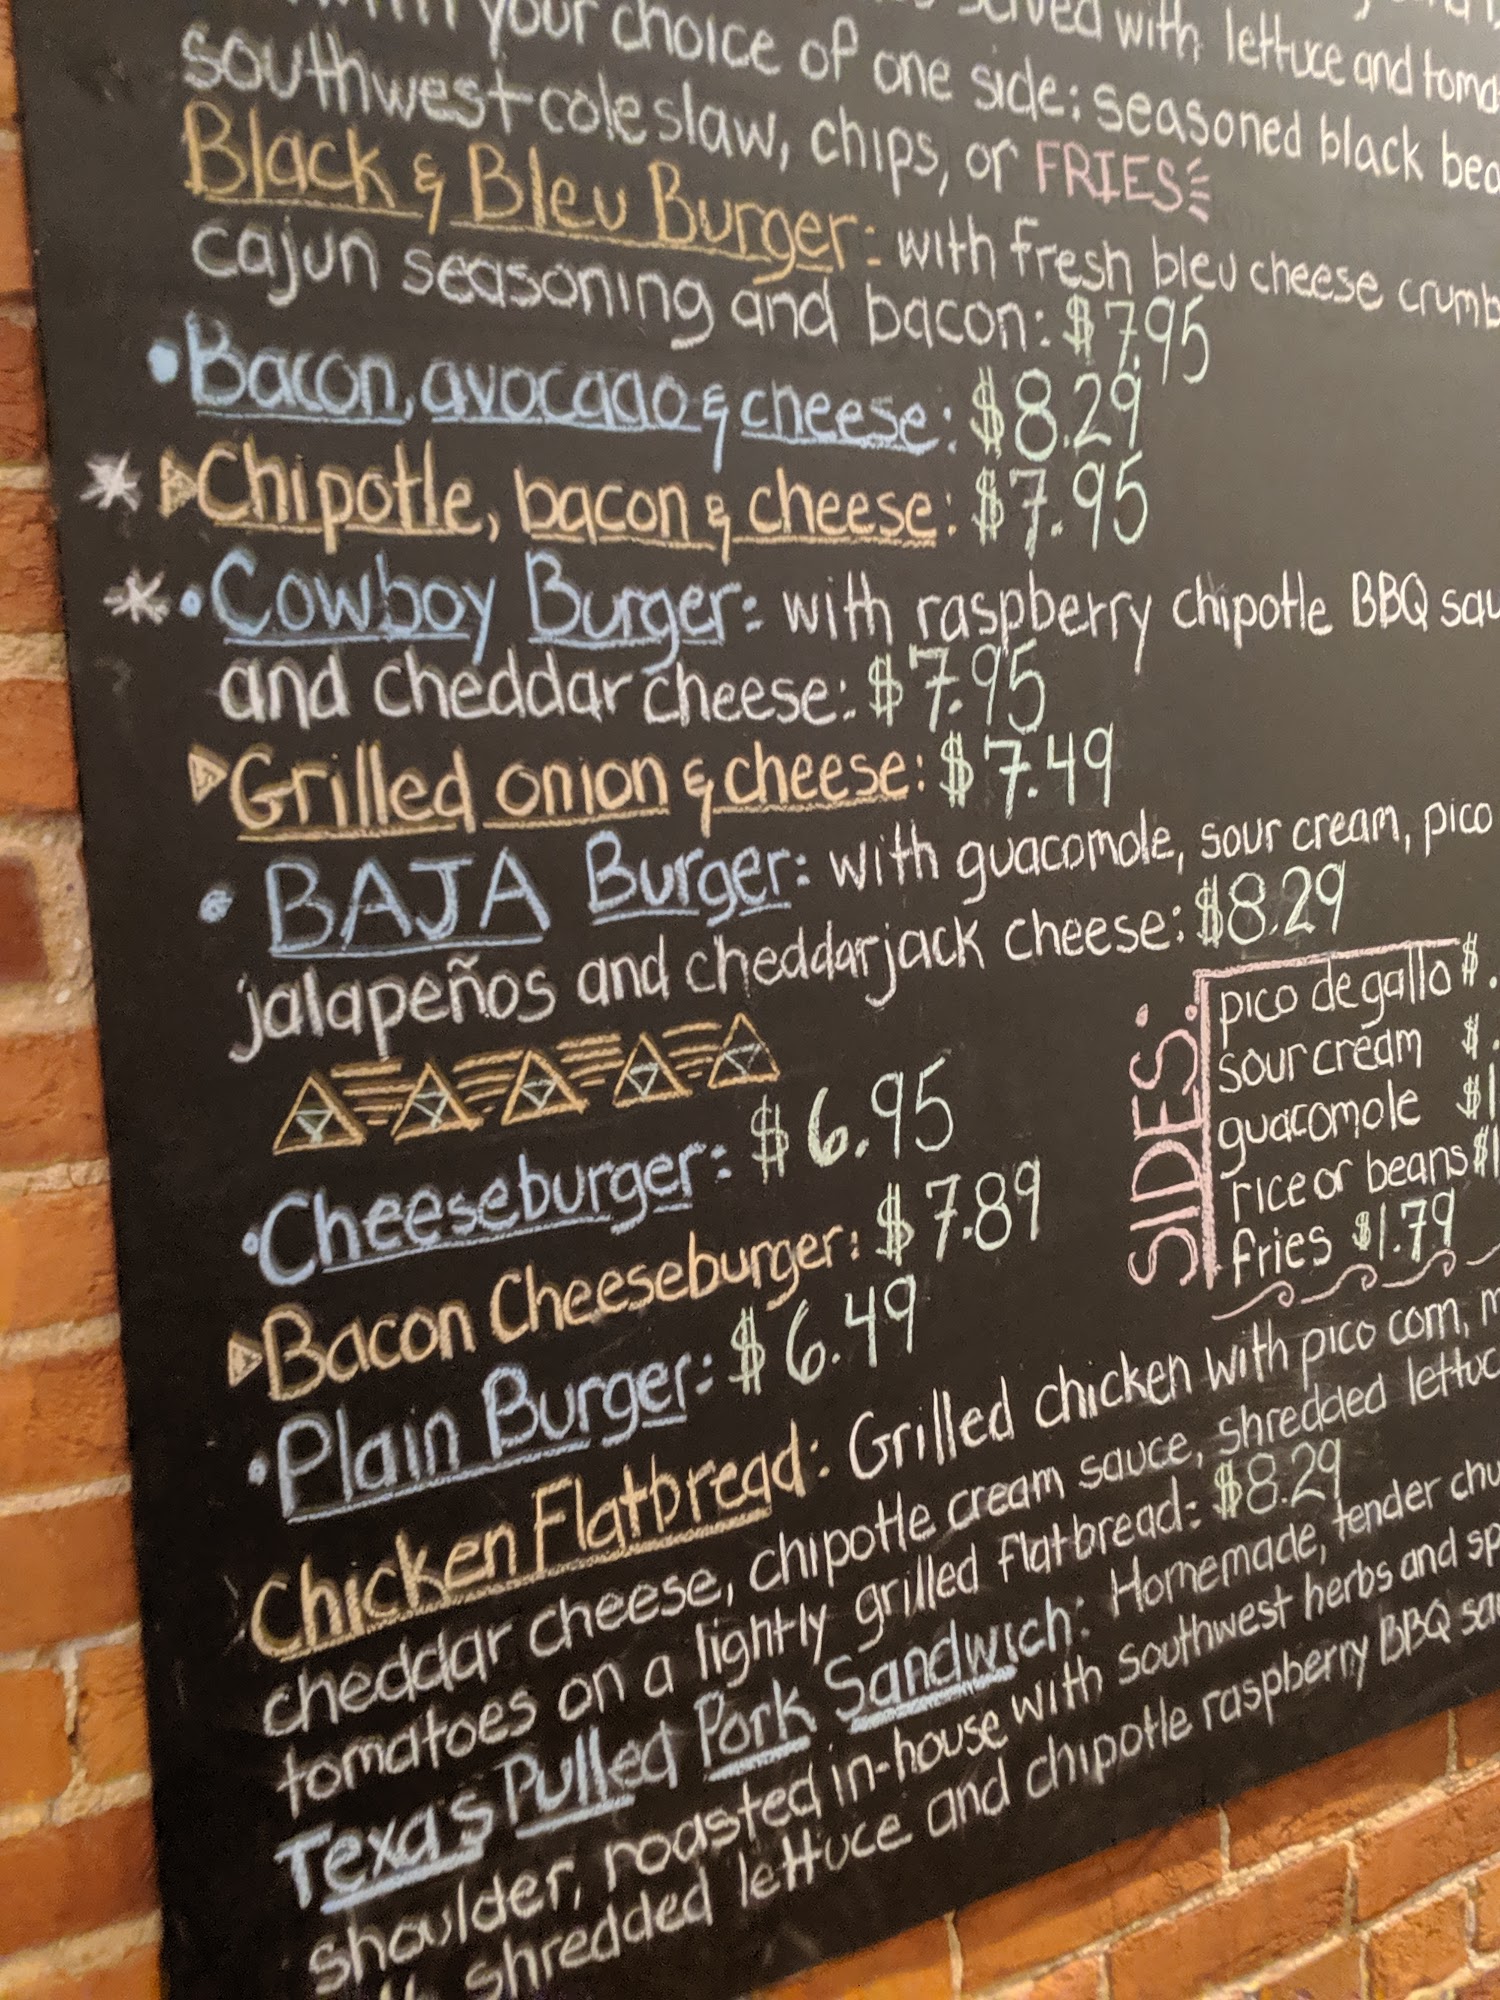 your choice of one side: seasoned black
served with lettuce and
southwest coleslaw, chips, or FRIES
Black & Bleu Burger: with fresh bleu cheese
cajun seasoning and bacon: $7.95
• Bacon, avocado & cheese: $8.29
* Chipotle, bacon & cheese: $7.95
* • Cowboy Burger: with raspberry chipotle BBQ
and cheddar cheese: $7.95
Grilled onion & cheese: $7.49
• BAJA Burger: with guacomole, sour cream, pico
jalapeños and cheddarjack cheese: $8.29
SIDES:
pico de gallo $.
sour cream $.
guacomole $1
rice or beans $1
fries $1.79
• Cheeseburger: $6.95
Bacon Cheeseburger: $7.89
• Plain Burger: $6.49
Chicken Flatbread: Grilled chicken with pico corn,
cheddar cheese, chipotle cream sauce, shredded
tomatoes on a lightly grilled flatbread: $8.29
Texas Pulled Pork Sandwich: Homemade, tender
shoulder, roasted in-house with southwest herbs and
shredded lettuce and chipotle raspberry BBQ